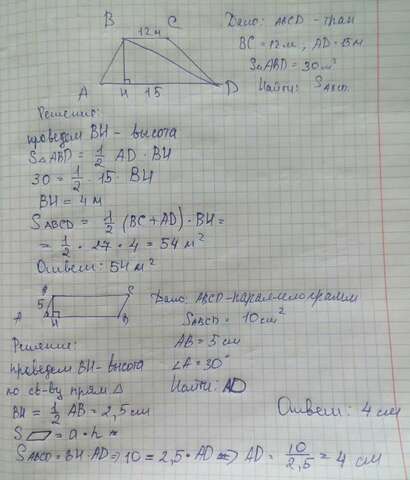 B C
12м
Дано: ABCD - трап
BC = 12м, AD = 15м
S△ABD = 30м²
Найти: SABCD.
A H 15 D
Решение:
проведем BH - высота
S△ABD = 1/2 AD · BH
30 = 1/2 · 15 · BH
BH = 4 м
SABCD = 1/2 (BC + AD) · BH =
= 1/2 · 27 · 4 = 54 м²
Ответ: 54 м²
5
A H
Дано: ABCD - параллелограмм
SABCD = 10 см²
AB = 5 см
∠A = 30°
Найти: AD
Решение:
проведем BH - высота
по св-ву прям △
BH = 1/2 AB = 2,5 см
S▱ = a · h
SABCD = BH · AD ⇒ 10 = 2,5 · AD ⇒ AD = 10/2,5 = 4 см
Ответ: 4 см